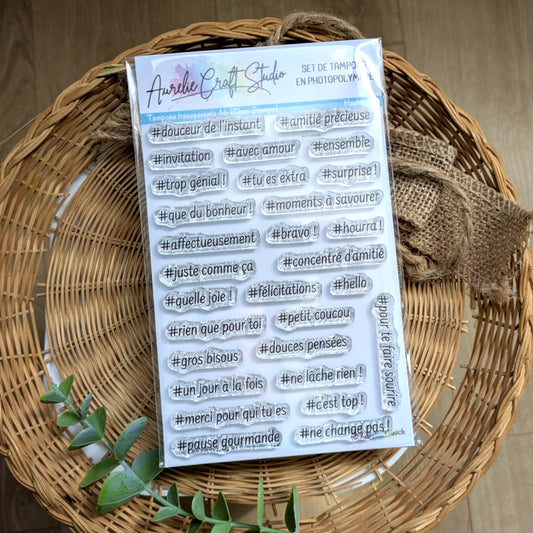 Aurelie Craft Studio
SET DE TAMPONS
EN PHOTOPOLYMÈRE
Tampons transparents A6 (Clear Stamps)
#douceur de l'instant #amitié précieuse
#invitation #avec amour #ensemble
#trop génial ! #tu es extra #surprise !
#que du bonheur ! #moments à savourer
#affectueusement #bravo ! #hourra !
#juste comme ça #concentré d'amitié
#quelle joie ! #félicitations #hello
#rien que pour toi #petit coucou
#pour te faire sourire
#gros bisous #douces pensées
#un jour à la fois #ne lâche rien !
#merci pour qui tu es #c'est top !
#pause gourmande #ne change pas !